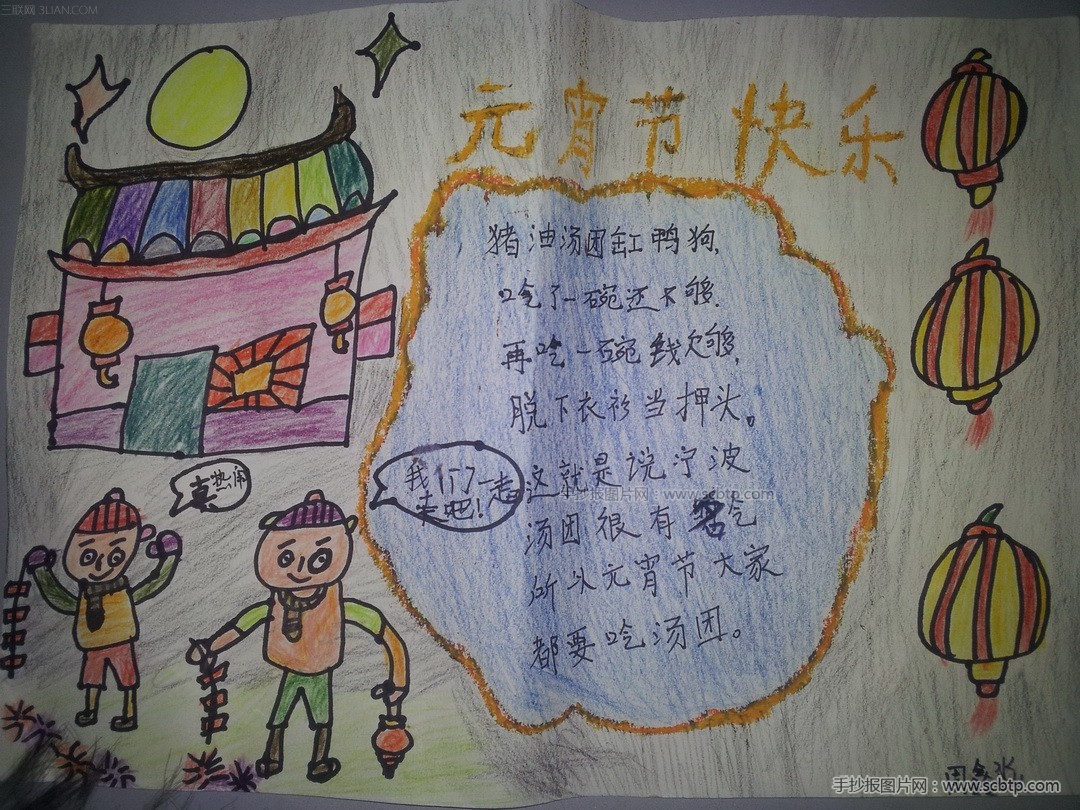 三联网 3LIAN.COM
元宵节快乐
猪油汤团缸鸭狗,
吃了一碗还不够.
再吃一碗钱欠够,
脱下衣衫当押头。
这就是说宁波
汤团很有名气
所以元宵节大家
都要吃汤团。
真热闹
我们一起
去吧!
手抄报图片网——www.scbtp.com
手抄报图片网:www.scbtp.com